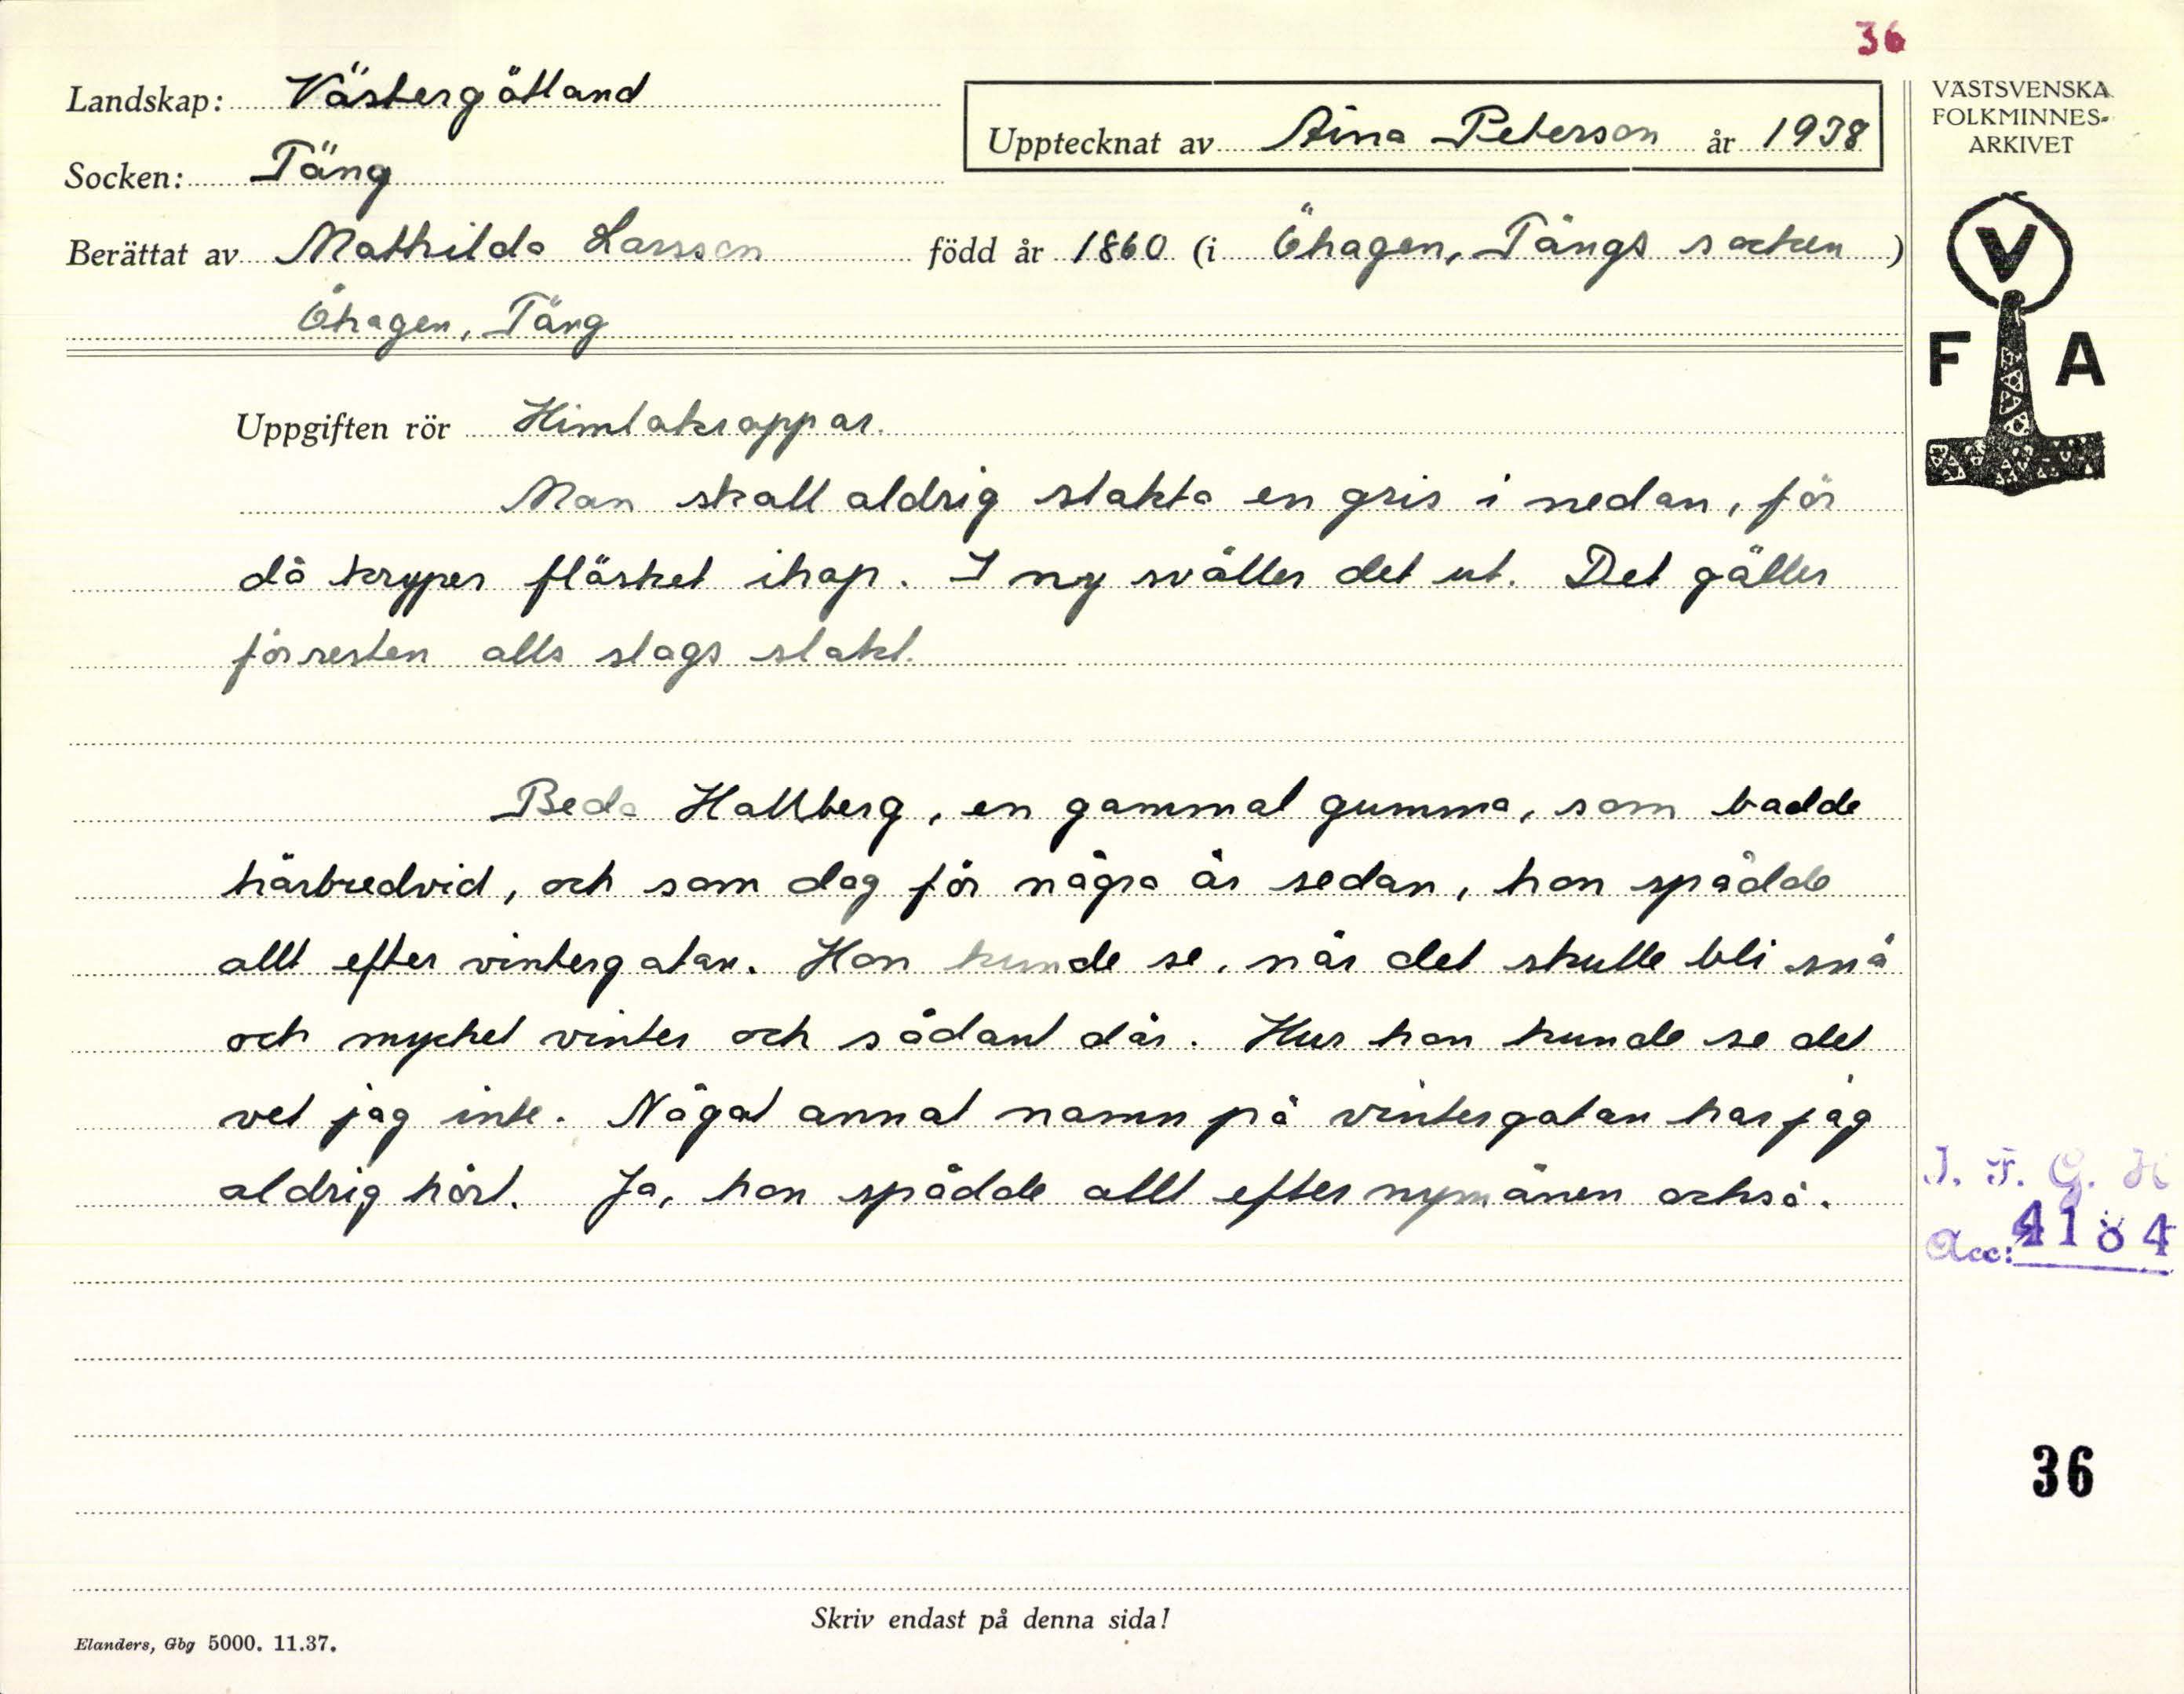 36
Landskap: Västergötland
Upptecknat av Aina Peterson år 1938
VÄSTSVENSKA
FOLKMINNES-
ARKIVET
Socken: Täng
Berättat av Mathilda Larsson född år 1860 (i Öhagen, Tängs socken)
Öhagen, Täng
V
F A
Uppgiften rör Himlakroppar.
Man skall aldrig slakta en gris i nedan, för
då kryper fläsket ihop. I ny sväller det ut. Det gäller
förresten alls slags slakt.
Beda Hallberg, en gammal gumma, som bodde
härbredvid, och som dog för några år sedan, hon spådde
allt efter vintergatan. Hon kunde se, när det skulle bli snö
och mycket vinter och sådant där. Hur hon kunde se det
vet jag inte. Något annat namn på vintergatan har jag
aldrig hört. Ja, hon spådde allt efter nymånen också.
I. F. G. H
Acc: 4184
36
Skriv endast på denna sida!
Elanders, Gbg 5000. 11.37.